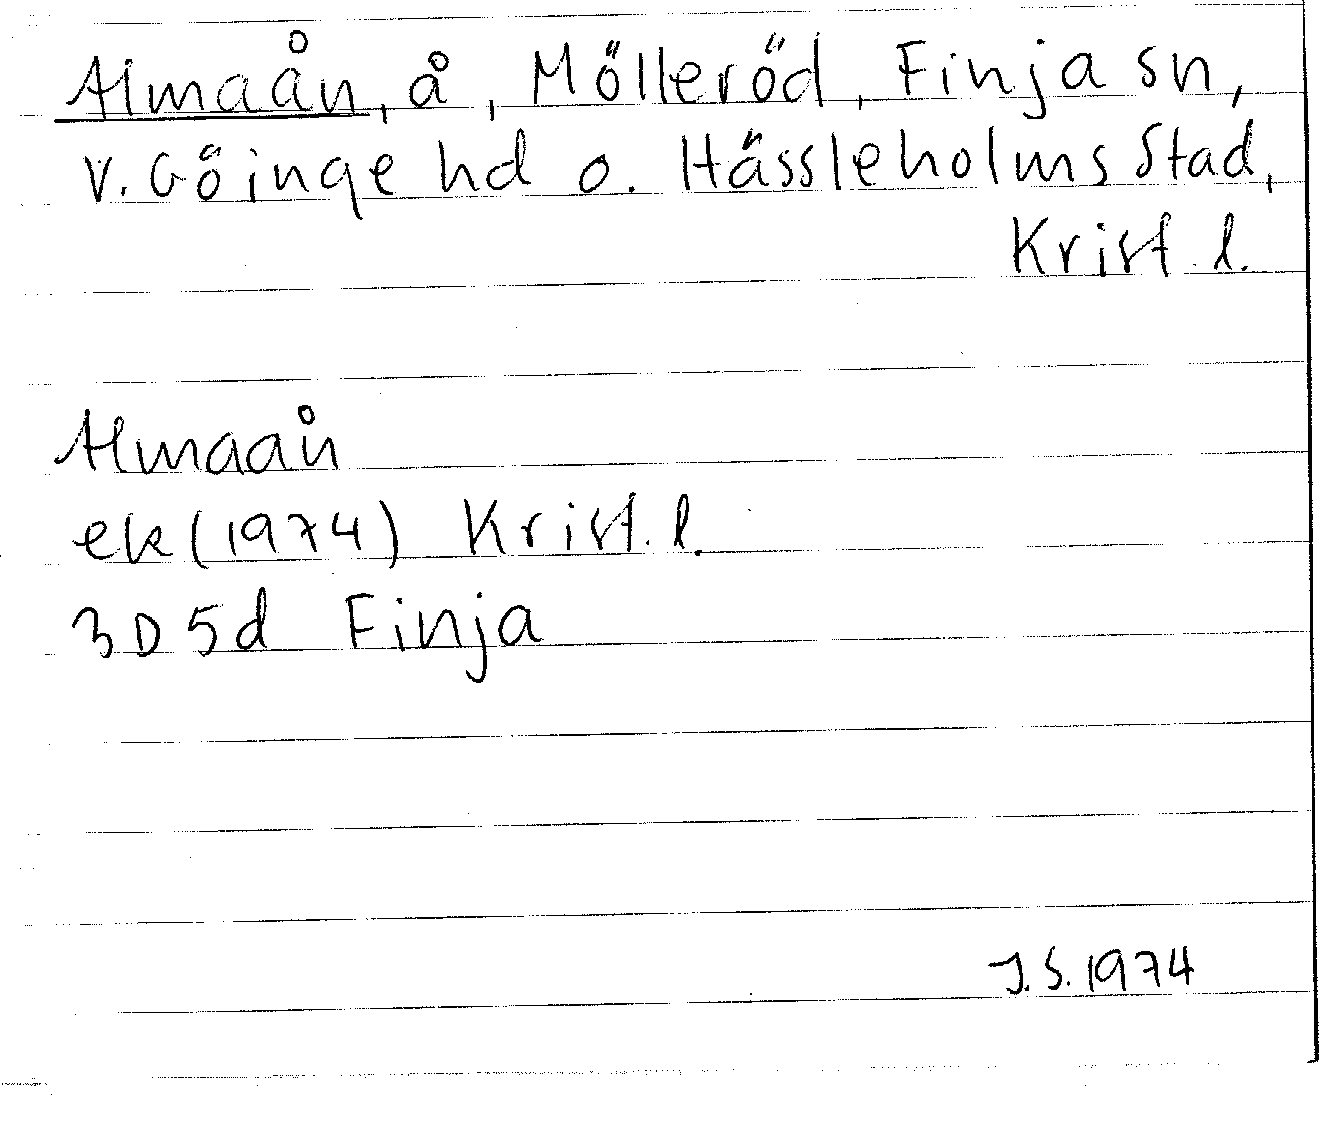 Almaån, å, Mölleröd, Finja sn,
V. Göinge hd o. Hässleholms stad,
Krist. l.
Almaån
ek (1974) Krist. l.
3D5d Finja
J.S. 1974